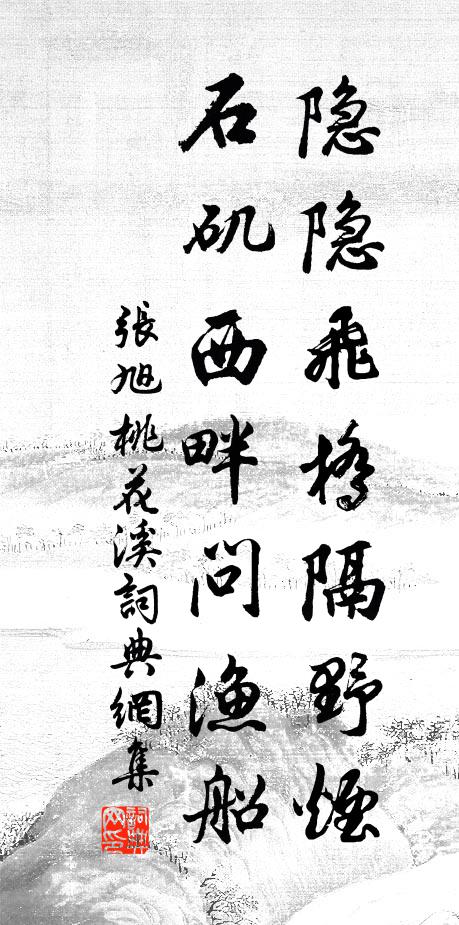 隐隐飛橋隔野煙
石矶西畔问漁船
張旭桃花溪詞典網集